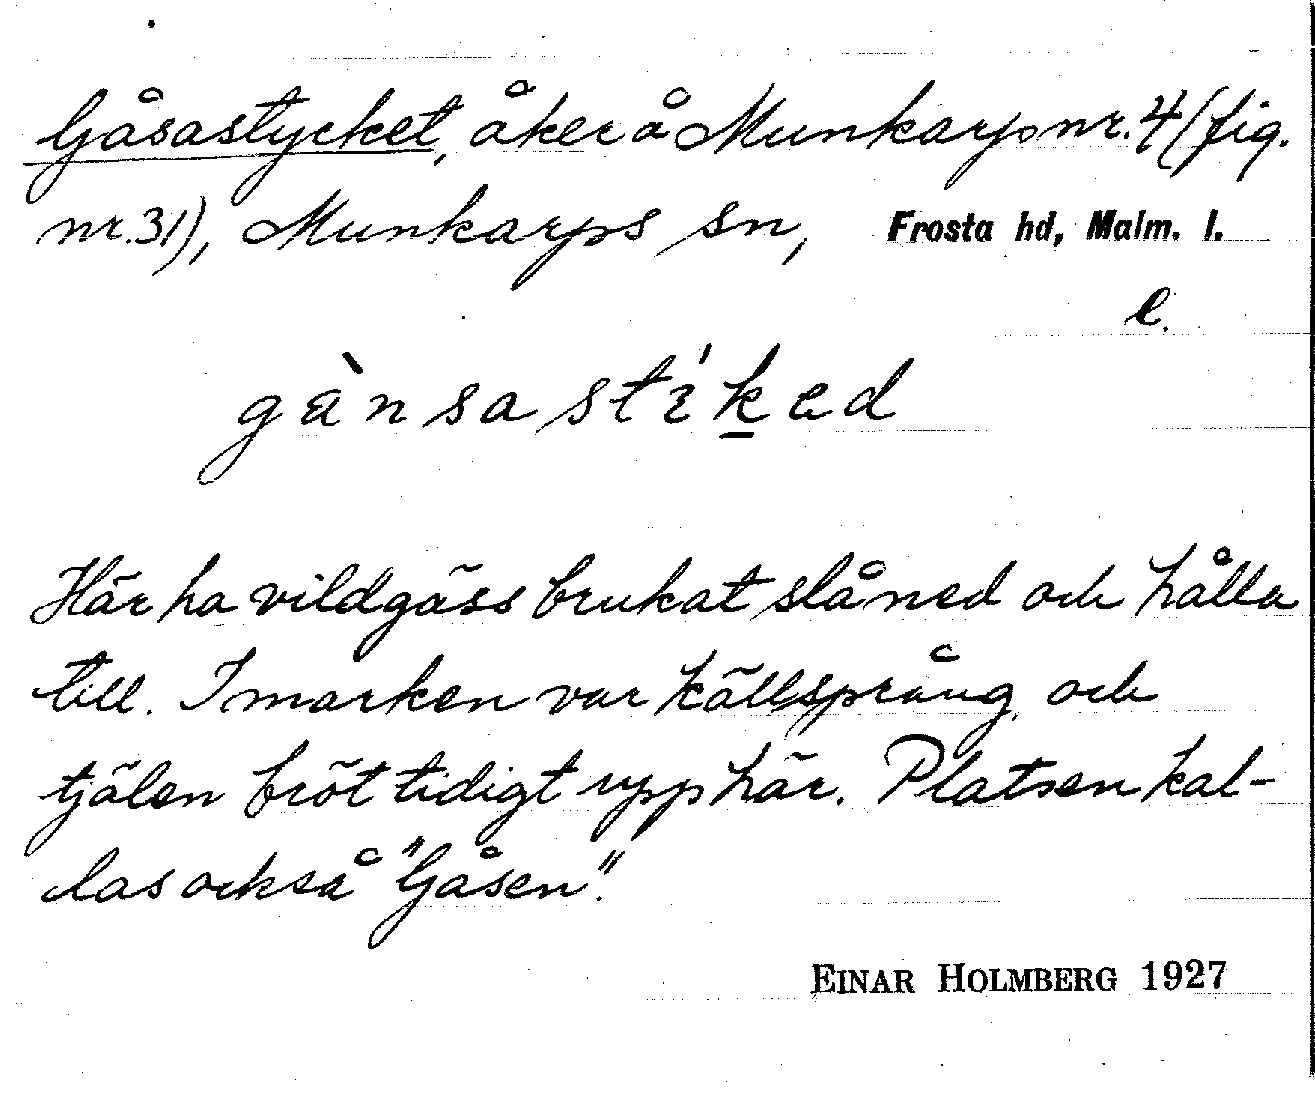 Gåsastycket, åker å Munkarp nr. 4 (fig.
nr. 31), Munkarps sn, Frosta hd, Malm. l.
l.
gànsastíḵed
Här ha vildgäss brukat slå ned och hålla
till. I marken var källsprång och
tjälen bröt tidigt upp här. Platsen kal-
las också "Gåsen".
EINAR HOLMBERG 1927